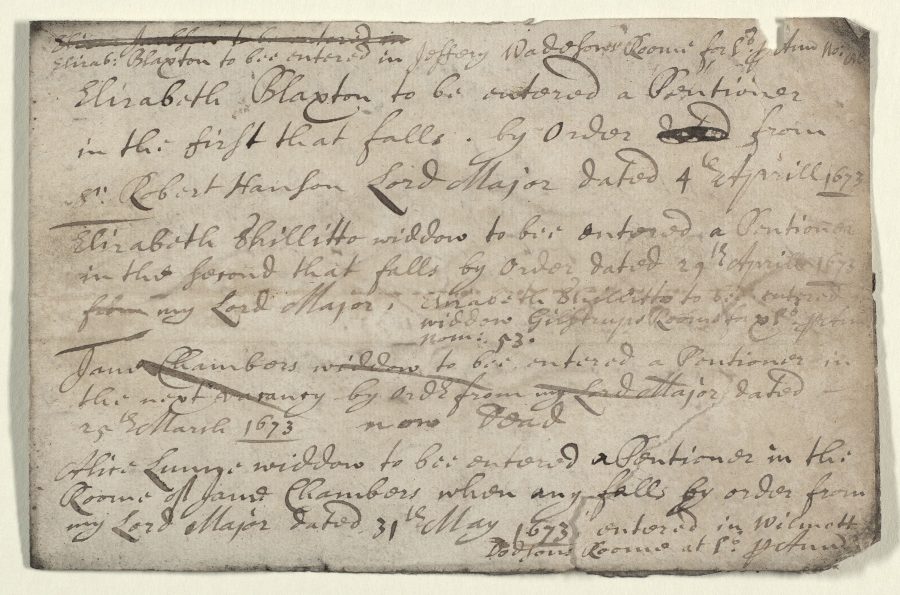 to bee entered in
Elizab: Blaxton to bee entered in Jeffery Wadesons Roome for p Ann No:
Elizabeth Blaxton to be entered a Pentioner
in the first that falls . by Order dated from
Sr. Robert Hanson Lord Major dated 4th Aprill 1673
Elizabeth Shillitto widdow to bee entered a Pentioner
in the second that falls by Order dated 29th Aprill 1673
from my Lord Major . Elizabeth Shillitto to bee entered
widdow Gilstraps Roome p Ann
nom: 53.
Jane Chambers widdow to bee entered a Pentioner in
the next vacancy by Ordr from my Lord Major dated
25th March 1673 now Dead
Alice Lunne widdow to bee entered a Pentioner in the
Roome of Jane Chambers when any falls by order from
my Lord Major dated 31th May 1673 entered in Wilmott
Dodsons Roome at p Annu